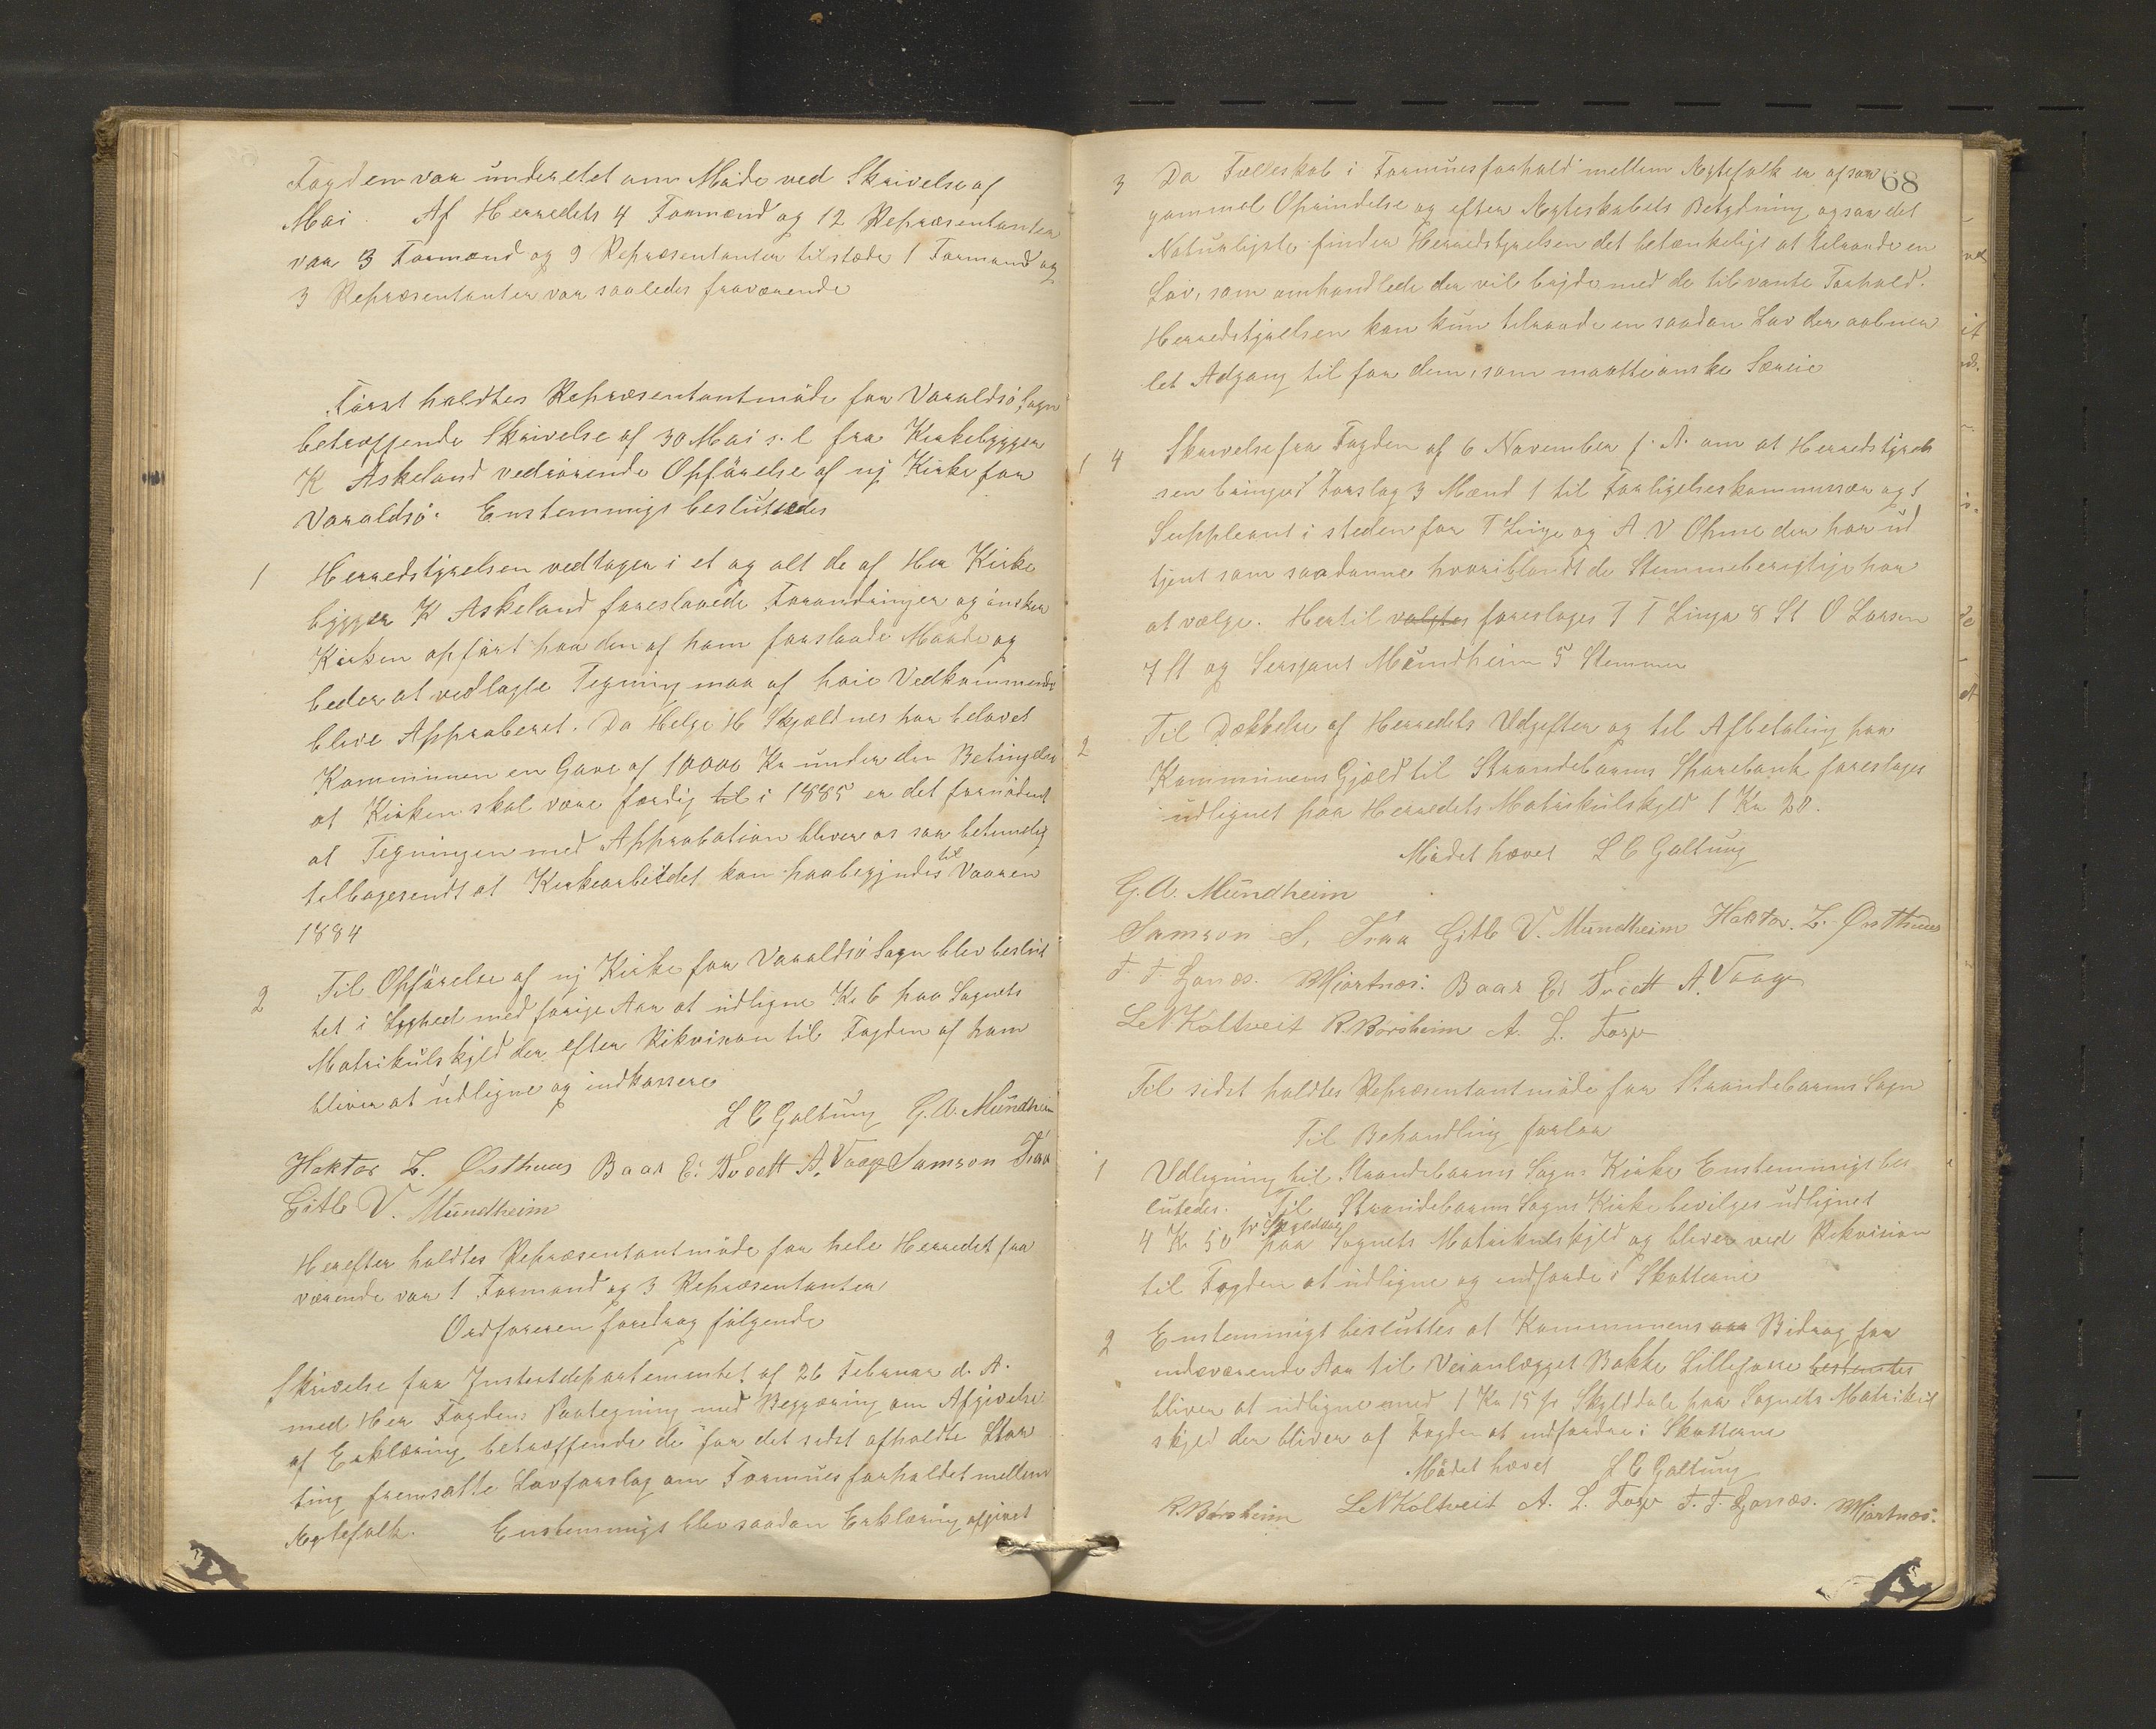 Fogden var underettet om Møde ved Skrivelse af
Mai. Af Herredets 4 Formænd og 12 Repræsentanter
var 3 Formænd og 9 Repræsentanter tilstæde 1 Formand og
3 Repræsentanter var saaledes fraværende
Først holdtes Repræsentantmøde for Varaldsö Sogn
betræffende Skrivelse af 30 Mai s. l fra Kirkebygger
K Askeland vedrörende Opförelse af ny Kirke for
Varaldsö. Enstemmigt beslutedes
1 Herredstyrelsen vedtager i et og alt de af Her Kirke
bygger K Askeland foreslaaede Forandringer og önsker
Kirken opfört paa den af ham forslaade Maade og
beder at vedlagte Tegning maa af høie Vedkommende
blive Approberet. Da Helge H Skjældnes har belovet
Kommunen en Gave af 10000 Kr under den Betingelse
at Kirken skal være færdig til i 1885 er det fornödent
at Tegningen med Approbation bliver os saa betimelig
tilbagesendt at Kirkearbeidet kan paabegyndes til Vaaren
1884
2 Til Opförelse af ny Kirke for Varaldsö Sogn blev beslut
tet i Ligghed med forige Aar at udligne Kr 6 paa Sognets
Matrikulskyld der efter Rikvision til Fogden af ham
bliver at udligne og indkassere
L C Galtung G. A. Mundheim
Haktor L. Østhuus Baar E: Tvedt A. Vaage Samson Traa
Gitle V. Mundheim
Herefter holdtes Repræsentantmøde for hele Herredet fra
værende var 1 Formand og 3 Repræsentanter
Ordføreren foredrog følgende
Skrivelse fra Justitsdepartementet af 26 Februar d. A.
med Her Fogdens Paategning med Begjæring om Afgivelse
af Erklæring betræffende de for det sidst afholdte Stor
ting fremsatte Lovforslag om Formuesforholdet mellem
Ægtefolk. Enstemmigt blev saadan Erklæring afgivet
68
3 Da Fælleskab i Formuesforhold mellem Ægtefolk er af saa
gammel Oprindelse og efter Ægteskabets Betydning ogsaa det
Naturligste finder Herredstyrelsen det betænkeligt at tilraade en
Lov, som omhandlede der vil bryde med de tilvante Forhold.
Herredstyrelsen kan kun tilraade en saadan Lov der aabner
let Adgang til for dem, som maatte önske Særeie
1 4 Skrivelse fra Fogden af 6 November f. A. om at Herredstyrel
sen bringer i Forslag 3 Mænd 1 til Forligelseskommissær og 1
Suppleant i steden for T Linge og A V Ohme der har ud
tjent som saadanne hvoriblandt de Stemmeberigtige har
at vælge. Hertil valgtes foreslages T T Linga 8 St O Larsen
7 St og Sersjant Mundheim 5 Stemmer
2 Til Dækkelse af Herredets Udgifter og til Afbetaling paa
Kommunens Gjæld til Strandebarms Sparebank foreslages
udlignet paa Herredets Matrikulskyld 1 Kr 20.
Mødet hævet L C Galtung
G. A. Mundheim
Samson S. Traa Gitle V. Mundheim Haktor. L. Østhuus
T. T. Ljonæs. MHjortnæs: Baar E: Tvedt A. Vaage
L N Koltveit R. Børsheim A. L. Fosse
Til sidst holdtes Repræsentantmøde for Strandebarms Sogn
Til Behandling forlaa
1 Udligning til Strandebarms Sogns Kirke Enstemmigt bes
lutedes. Til Strandebarms Sogns Kirke bevilges udlignet
4 Kr 50 pr Skylddaler paa Sognets Matrikulskyld og bliver ved Rikvision
til Fogden at udligne og indfordre i Skatterne
2 Enstemmigt besluttes at Kommunens aar Bidrag for
indeværende Aar til Veianlægget Bakke Lillefosse bestemtes
bliver at udligne med 1 Kr 15 pr Skylddale paa Sognets Matrikul
skyld der bliver af Fogden at indfordre i Skatterne
Mødet hævet L C Galtung
R. Børsheim L N Koltveit A. L. Fosse T. T. Ljonæs. MHjortnæs.